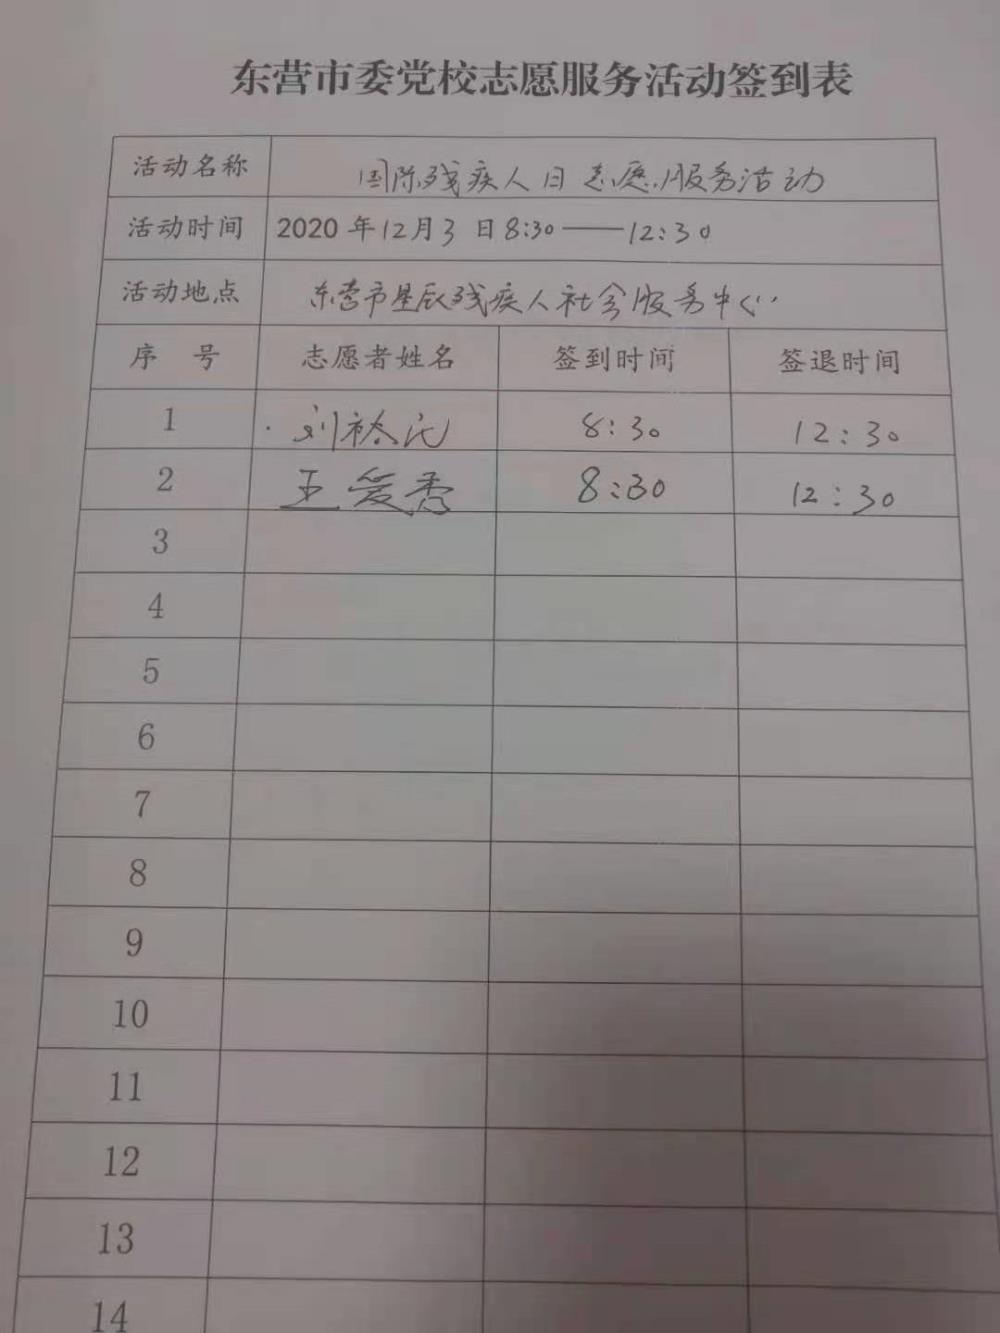 东营市委党校志愿服务活动签到表
活动名称 国际残疾人日志愿服务活动
活动时间 2020年12月3日8:30——12:30
活动地点 东营市星辰残疾人社会服务中心
序号 志愿者姓名 签到时间 签退时间
1 刘 8:30 12:30
2 王爱秀 8:30 12:30
3
4
5
6
7
8
9
10
11
12
13
14